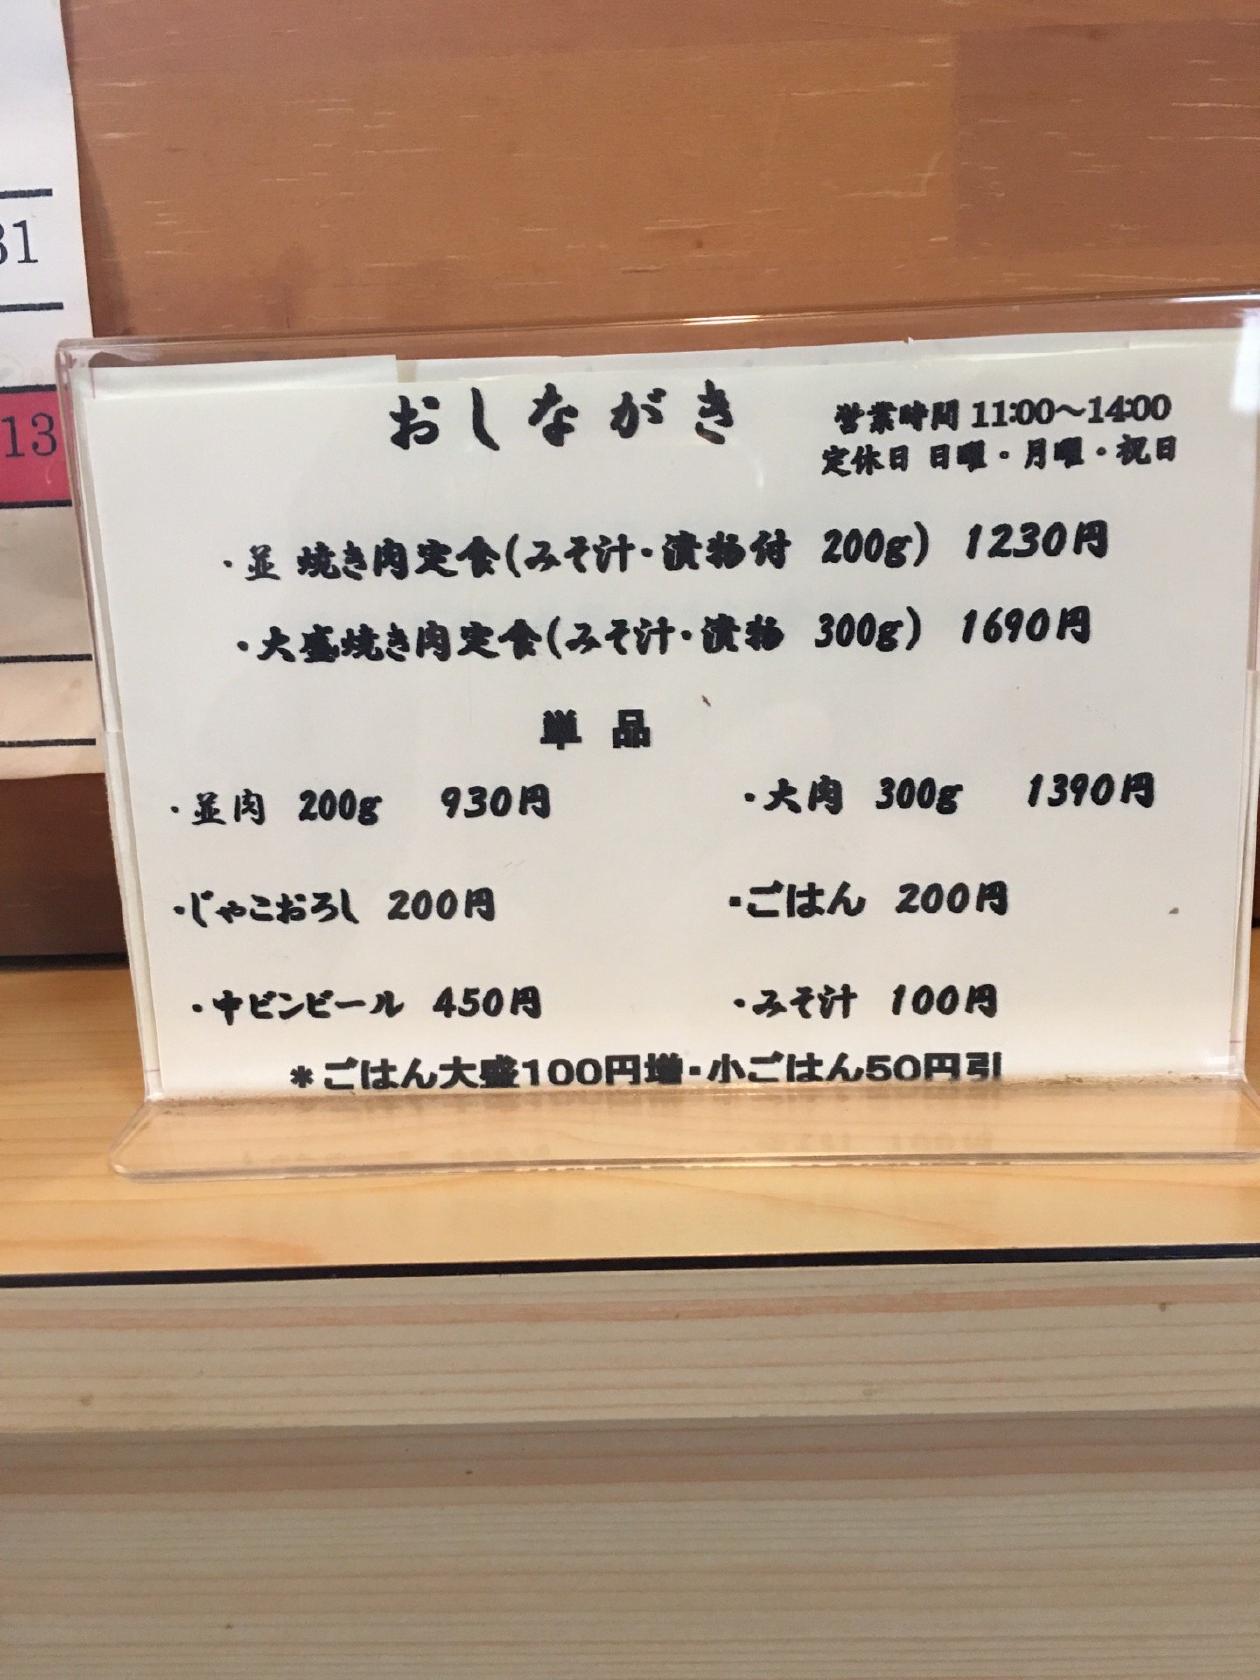 31
13
おしながき
営業時間 11:00～14:00
定休日 日曜・月曜・祝日
・並 焼き肉定食(みそ汁・漬物付 200g) 1230円
・大盛焼き肉定食(みそ汁・漬物 300g) 1690円
単品
・並肉 200g 930円
・大肉 300g 1390円
・じゃこおろし 200円
・ごはん 200円
・中ビンビール 450円
・みそ汁 100円
＊ごはん大盛100円増・小ごはん50円引